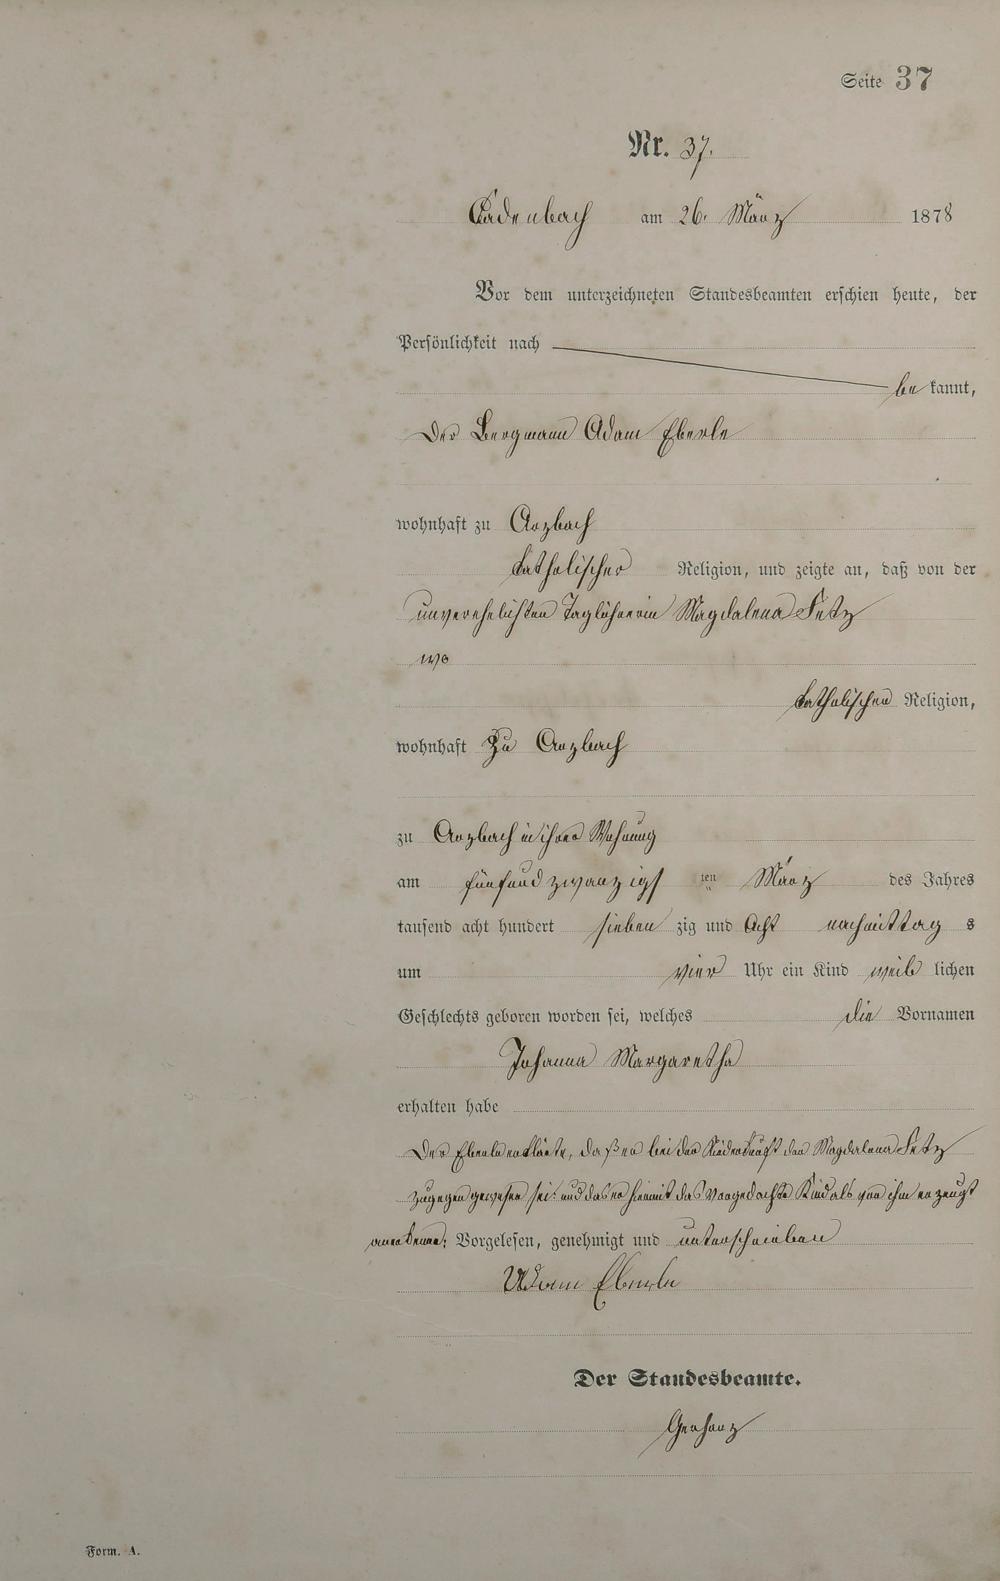 Seite 37
Nr. 37.
Cadenbach am 26. März 1878
Vor dem unterzeichneten Standesbeamten erschien heute, der
Persönlichkeit nach
be kannt,
Der Bergmann Adam Eberle
wohnhaft zu Arzbach
katholischer Religion, und zeigte an, daß von der
unverehelichten Taglöhnerin Magdalena Fetz
katholischen Religion,
wohnhaft zu Arzbach
zu Arzbach in ihrer Wohnung
am fünfundzwanzigs ten März des Jahres
tausend acht hundert sieben zig und Acht nachmittag s
um vier Uhr ein Kind weib lichen
Geschlechts geboren worden sei, welches die Vornamen
Johanna Margaretha
erhalten habe
Der Eberle erklärte, daß er bei der Niederkunft der Magdalena Fetz
zugegen gewesen sei und das er hiermit das vorgedachte Kind als von ihm erzeugt
anerkenne; Vorgelesen, genehmigt und unterschrieben
Adam Eberle
Der Standesbeamte.
Gerharz
Form. A.